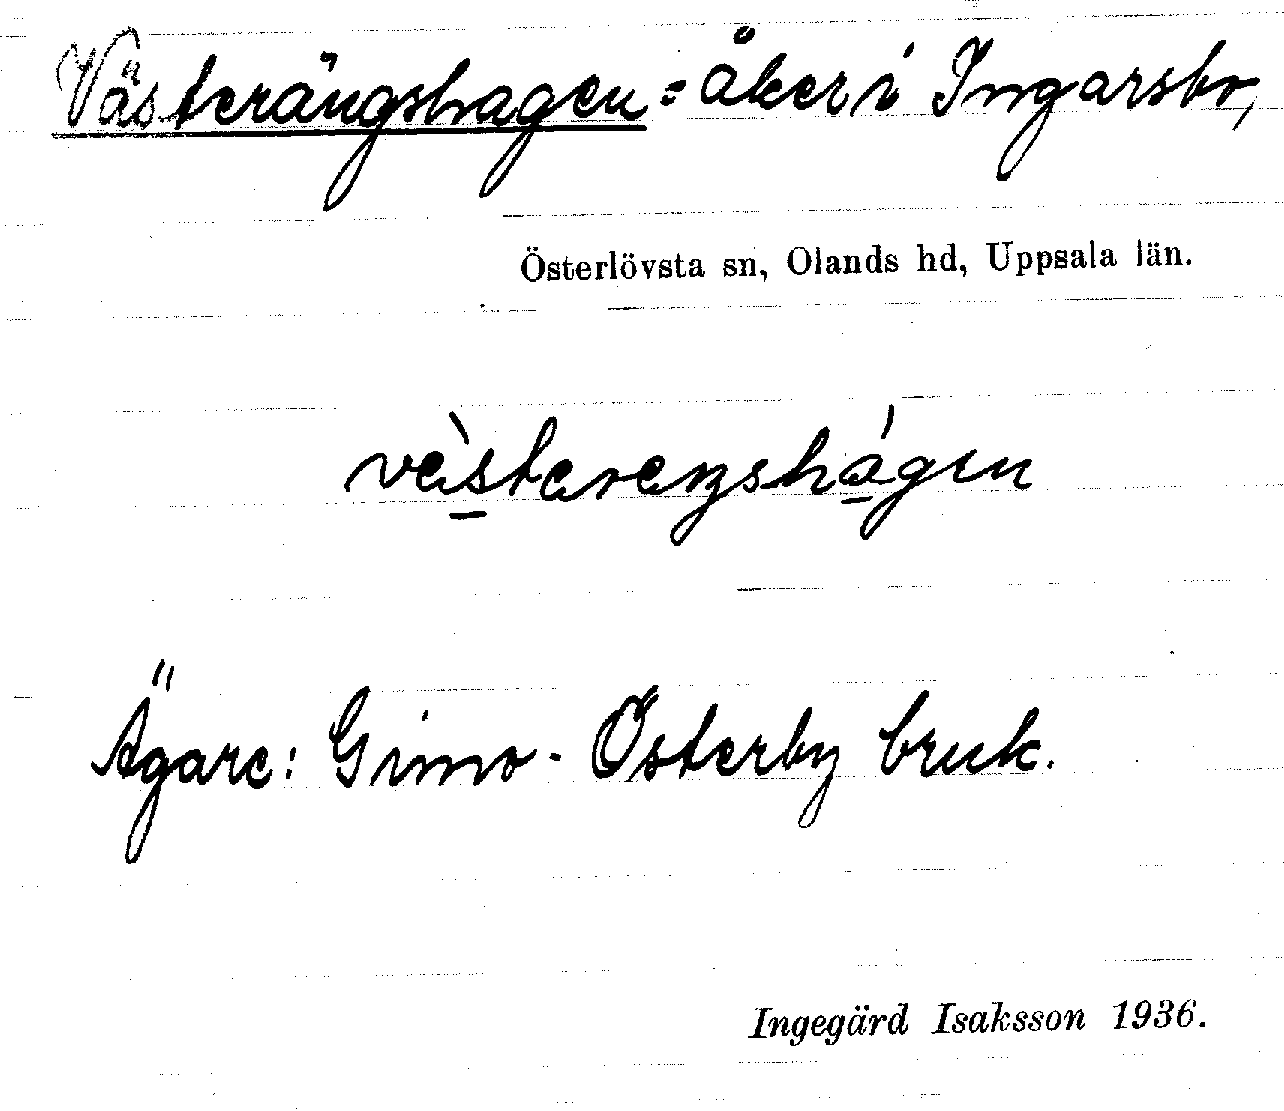 Västerängshagen = åker i Ingarsbo,
Österlövsta sn, Olands hd, Uppsala län.
vὲsterεŋshágen
Ägare: Gimo-Österby bruk.
Ingegärd Isaksson 1936.